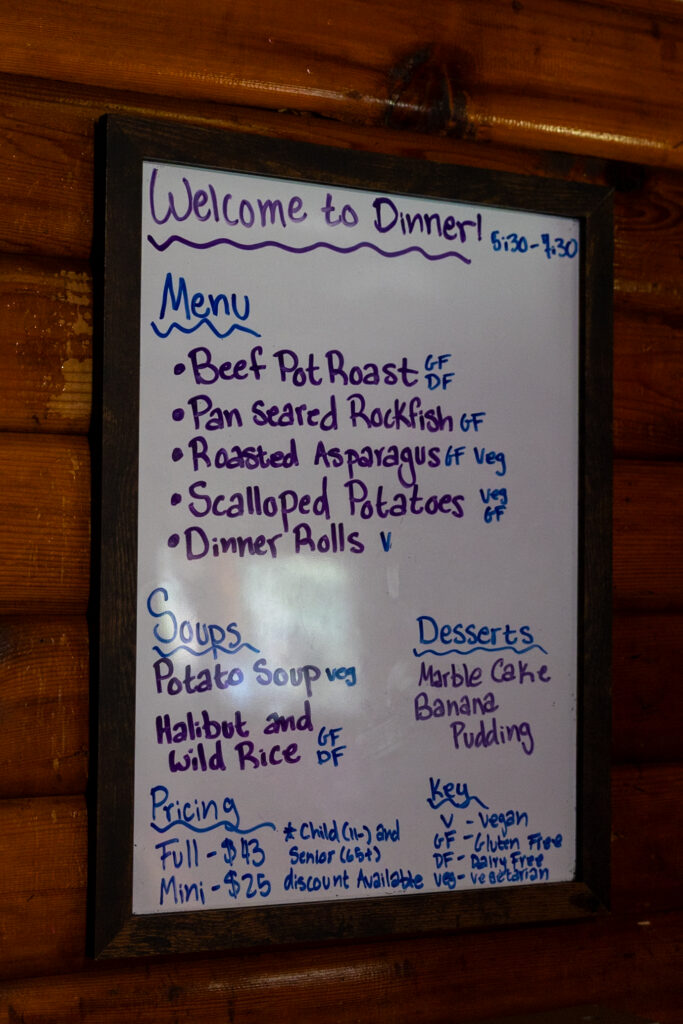 Welcome to Dinner! 5:30-7:30
Menu
• Beef Pot Roast GF DF
• Pan Seared Rockfish GF
• Roasted Asparagus GF Veg
• Scalloped Potatoes veg GF
• Dinner Rolls V
Soups
Potato Soup veg
Halibut and
Wild Rice GF DF
Desserts
Marble Cake
Banana
Pudding
Pricing
Full - $43
Mini - $25
* Child (11-) and
Senior (65+)
discount Available
Key
V - Vegan
GF - Gluten Free
DF - Dairy Free
veg - vegetarian